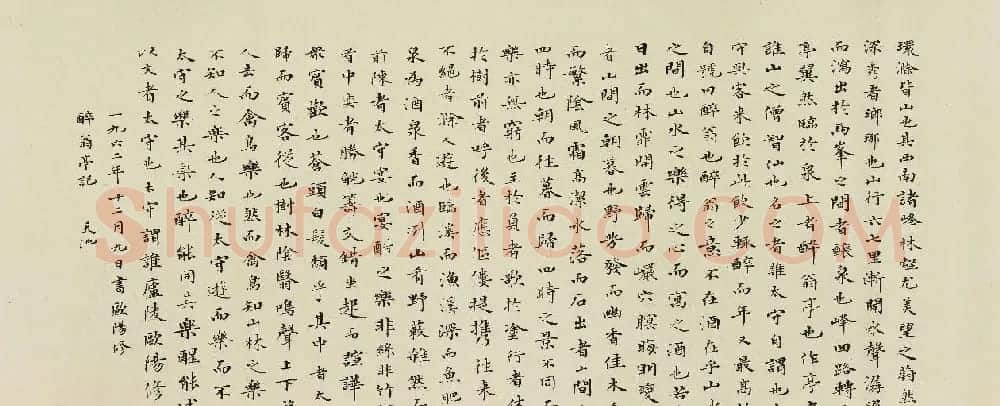 環滁皆山也其西南諸峰林壑尤美望之蔚然
深秀者瑯琊也山行六七里漸聞水聲潺
而瀉出於兩峯之間者釀泉也峰回路轉
亭翼然臨於泉上者醉翁亭也作亭
誰山之僧智仙也名之者誰太守自謂也
守與客來飲於此飲少輒醉而年又最高
自號曰醉翁也醉翁之意不在酒在乎山
之間也山水之樂得之心而寓之酒也若
日出而林霏開雲歸而巖穴暝晦明變
者山間之朝暮也野芳發而幽香佳木
而繁陰風霜高潔水落而石出者山間
四時也朝而往暮而歸四時之景不同
樂亦無窮也至於負者歌於塗行者休
於樹前者呼後者應傴僂提攜往來
不絕者滁人遊也臨溪而漁溪深而魚肥
泉為酒泉香而酒洌山肴野蔌雜然
前陳者太守宴也宴酣之樂非絲非竹
者中奕者勝觥籌交錯坐起而諠譁
眾賓歡也蒼顏白髮頹乎其中者太
歸而賓客從也樹林陰翳鳴聲上下
人去而禽鳥樂也然而禽鳥知山林之樂
不知人之樂也人知從太守遊而樂而不
太守之樂其樂也醉能同其樂醒能述
以文者太守也太守謂誰廬陵歐陽修
一九六二年十二月九日書歐陽修
醉翁亭記
Shufaziliao.COM